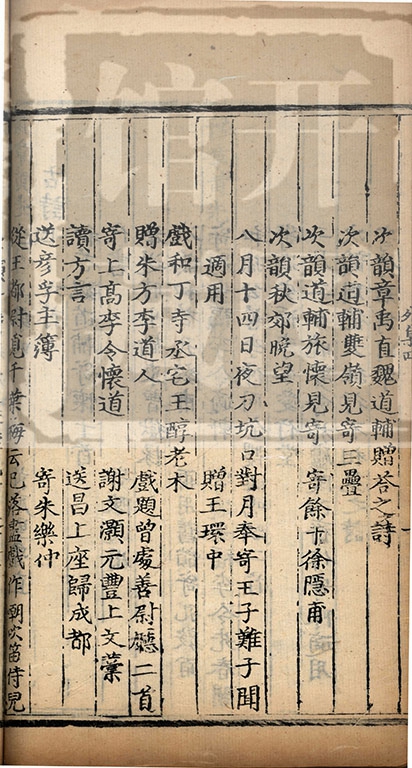 次韻章禹直魏道輔贈荅之詩
次韻道輔雙嶺見寄三疊
次韻道輔旅懷見寄　寄餘干徐隱甫
次韻秋郊晚望
八月十四日夜刀坑口對月奉寄王子難子聞
適用　贈王環中
戲和丁寺丞宅王醇老木
贈朱方李道人　戲題曾處善尉廳二首
寄上高李令懷道　謝文灝元豐上文藁
讀方言　送昌上座歸成都
送彥孚主簿　寄朱樂仲
從王都尉覓千葉梅云已落盡戲作嘲吹笛侍兒